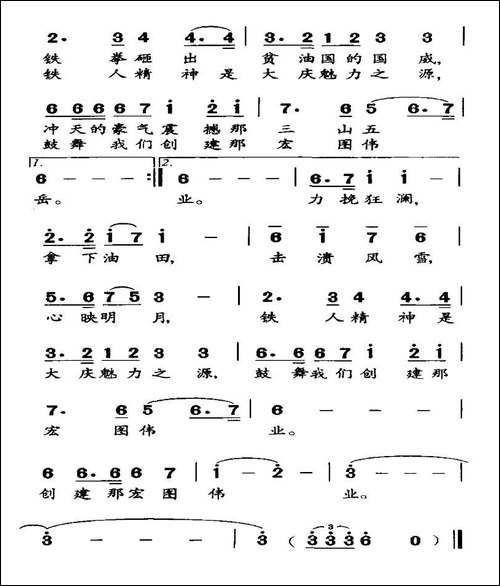 2. 3 4 4. 4 | 3. 2 1 2 3 3 |
铁 拳砸 出 贫油国的国 威,
铁 人精 神是 大庆魅力之 源,
6 6 6 6 7 i 2 i | 7. 6 5 6. 7 |
冲天的豪气震 撼那 三 山五
鼓舞 我们创 建那 宏 图伟
1. 2.
6 - - - :‖ 6 - - - | 6. 7 i i - |
岳。 业。 力挽狂 澜,
2. 2 i 7 i - | 6 i 7 6 |
拿 下油 田, 击 溃 风 雪,
5. 6 7 5 3 - | 2. 3 4 4. 4 |
心映明 月, 铁 人精 神是
3. 2 1 2 3 3 | 6. 6 6 7 i 2 i |
大庆魅力之 源, 鼓舞我们创 建那
7. 6 5 6. 7 | 6 - - - |
宏 图伟 业。
6 6. 6 6 7 | i - 2 - | 3 - - - |
创 建那宏图 伟 业。
3 - - - | 3 ( 3 3 3 6 0 ) ‖
3